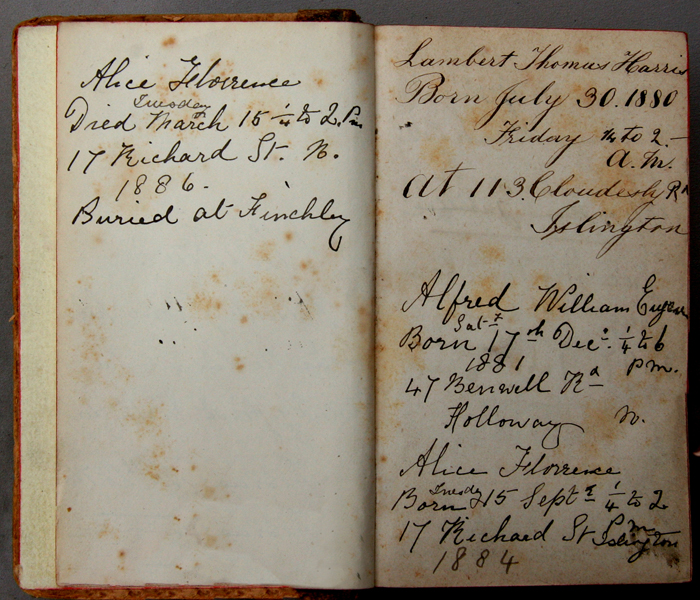 Alice Florrence
Tuesday
Died March 15 ¼ to 2. Pm
17 Richard St. N.
1886.
Buried at Finchley
Lambert Thomas Harris
Born July 30. 1880
Friday ¼ to 2.—
A.M.
At 113. Cloudesly Rd
Islington
Alfred William Eugene
Sat.y
Born 17th Decr ¼ to 6
1881 pm.
47 Benwell Rd
Holloway N.
Alice Florrence
Tuesday
Born 15 Septr ¼ to 2
Pm
17 Richard St Islington
1884